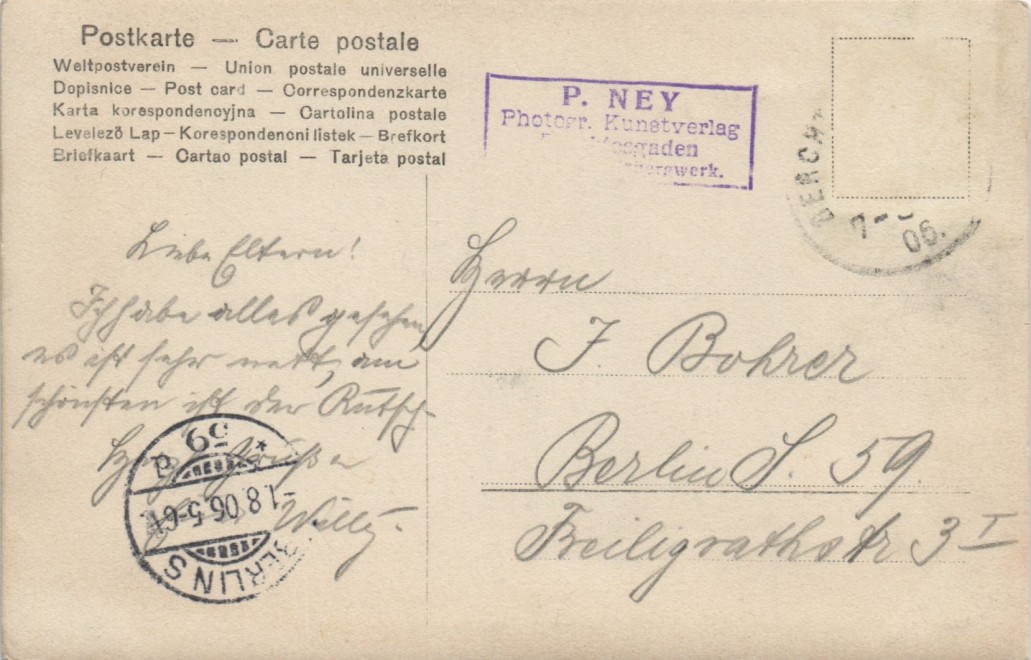 Postkarte — Carte postale
Weltpostverein — Union postale universelle
Dopisnice — Post card — Correspondenzkarte
Karta korespondencyjna — Cartolina postale
Levelező Lap – Korespondencni listek – Brefkort
Briefkaart — Cartao postal — Tarjeta postal
P. NEY
Photogr. Kunstverlag
06.
Liebe Eltern!
Ich habe alles gesehen
es ist sehr nett, am
schönsten ist der Rutsch-
Grüße
Willy.
Herrn
J. Bohrer
Berlin S. 59.
Freiligrathstr 3 I
BERLIN S
-1.8.06.5-6N
* 59 d